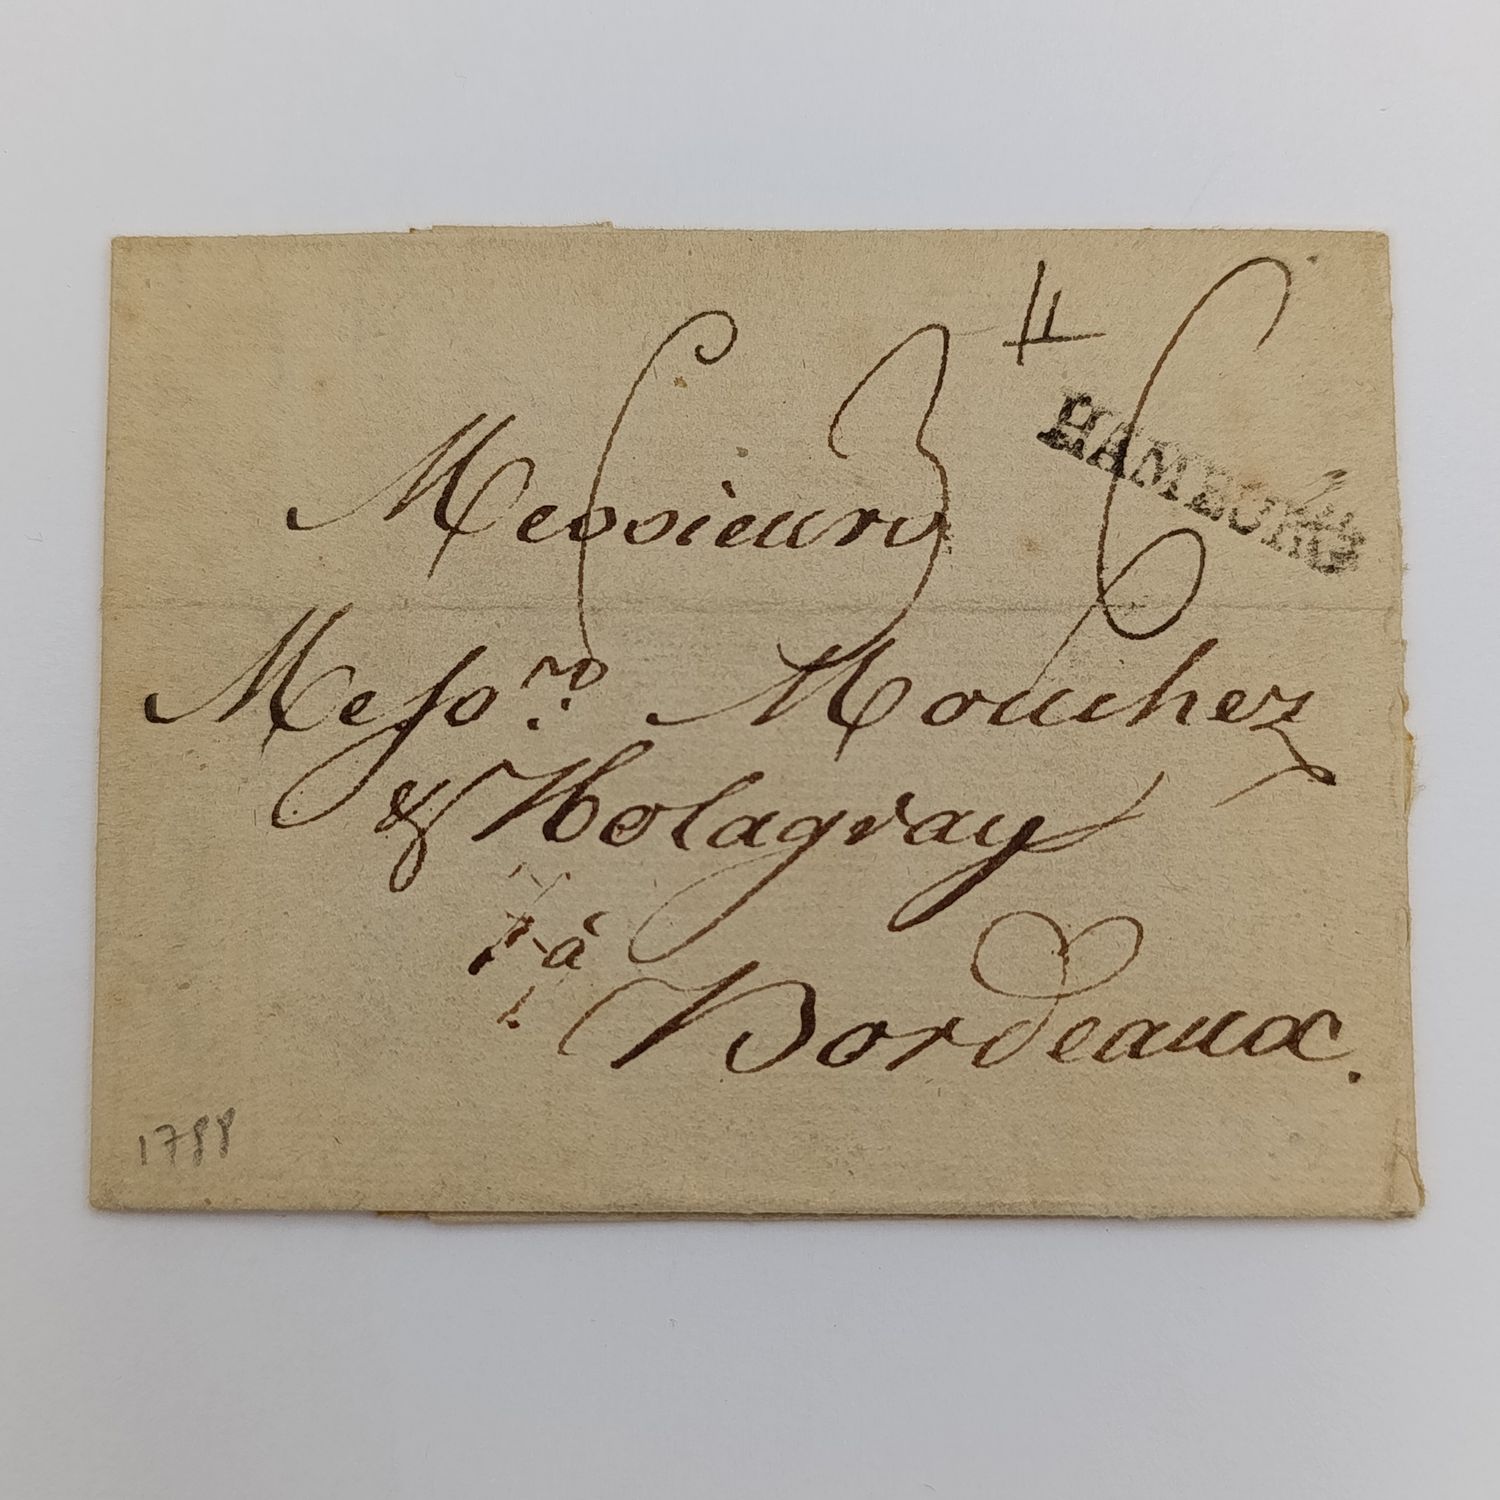 HAMBOURG
Messieurs
Messrs. Mouchez
& Holagray
à
Bordeaux.
1788